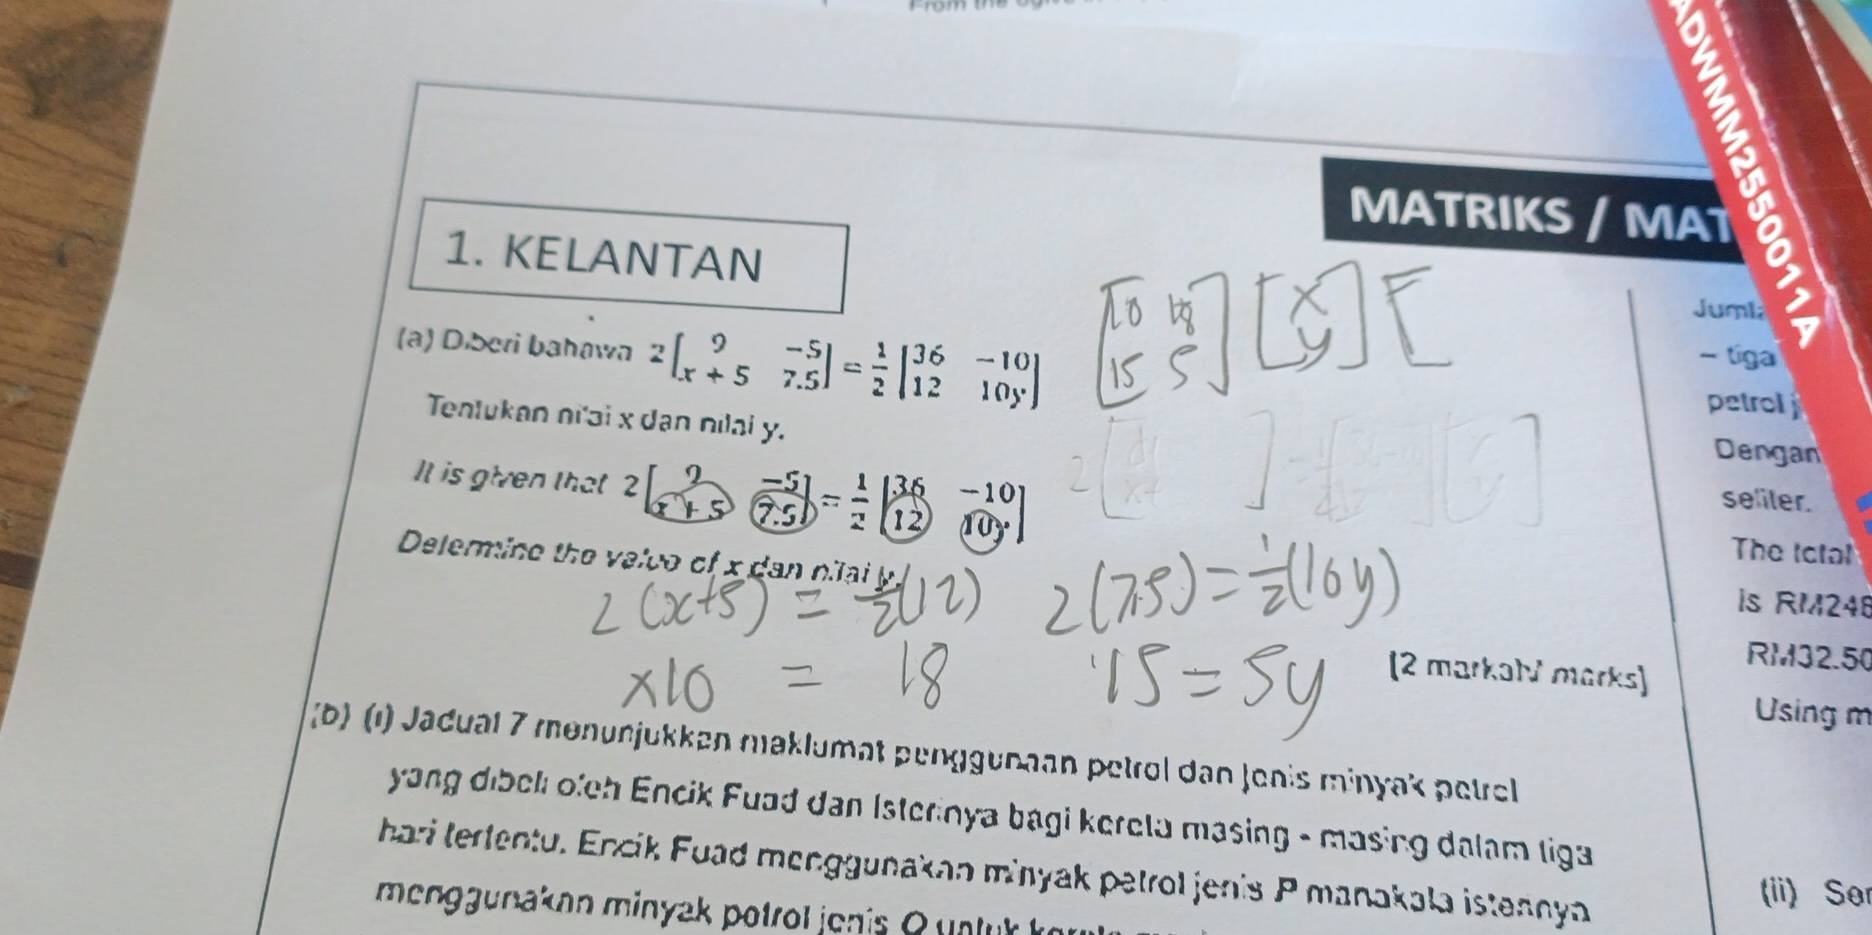 From the
ADWMM2550011A
MATRIKS / MAT
1. KELANTAN
(a) Diberi bahawa 2[9 -5; x + 5 7.5] = 1/2 [36 -10; 12 10y]
[10 18; 15 5] [x; y] [
Tentukan nilai x dan nilai y.
It is given that 2[9 -5; x + 5 7.5] = 1/2 [36 -10; 12 10y]
Determine the value of x dan nilai y.
2(x+5) = 1/2(12) 2(7.5) = 1/2(10y)
x10 = 18 15 = 5y
[2 markah/ marks]
(b) (i) Jadual 7 menunjukkan maklumat penggunaan petrol dan jenis minyak petrol
yang dibeli oleh Encik Fuad dan isterinya bagi kereta masing - masing dalam tiga
hari tertentu. Encik Fuad menggunakan minyak petrol jenis P manakala isterinya
menggunakan minyak petrol jenis Q untuk
Jumla
- tiga
petrol j
Dengan
seliter.
The total
is RM248
RM32.50
Using m
(ii) Se